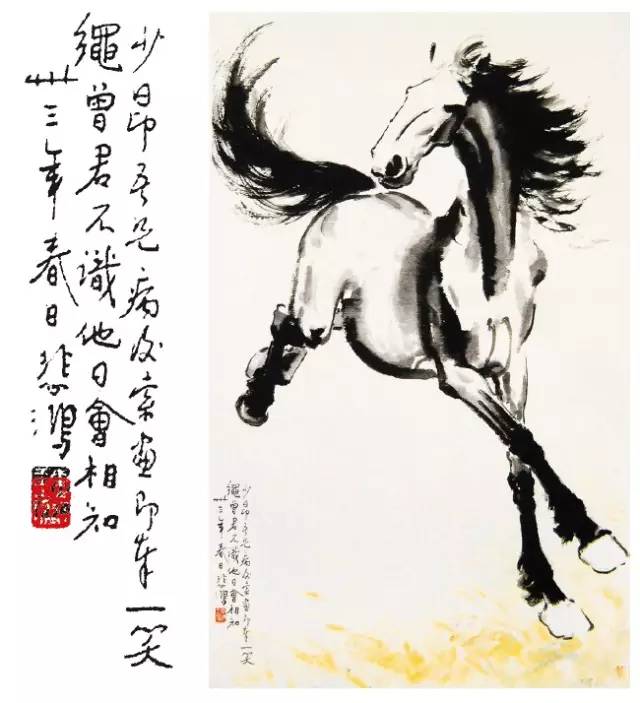 少昂吾兄病后索畫即奉一笑
繩曾君不識他日會相知
卅三年春日悲鴻
少昂吾兄病后索畫即奉一笑
繩曾君不識他日會相知
卅三年春日悲鴻